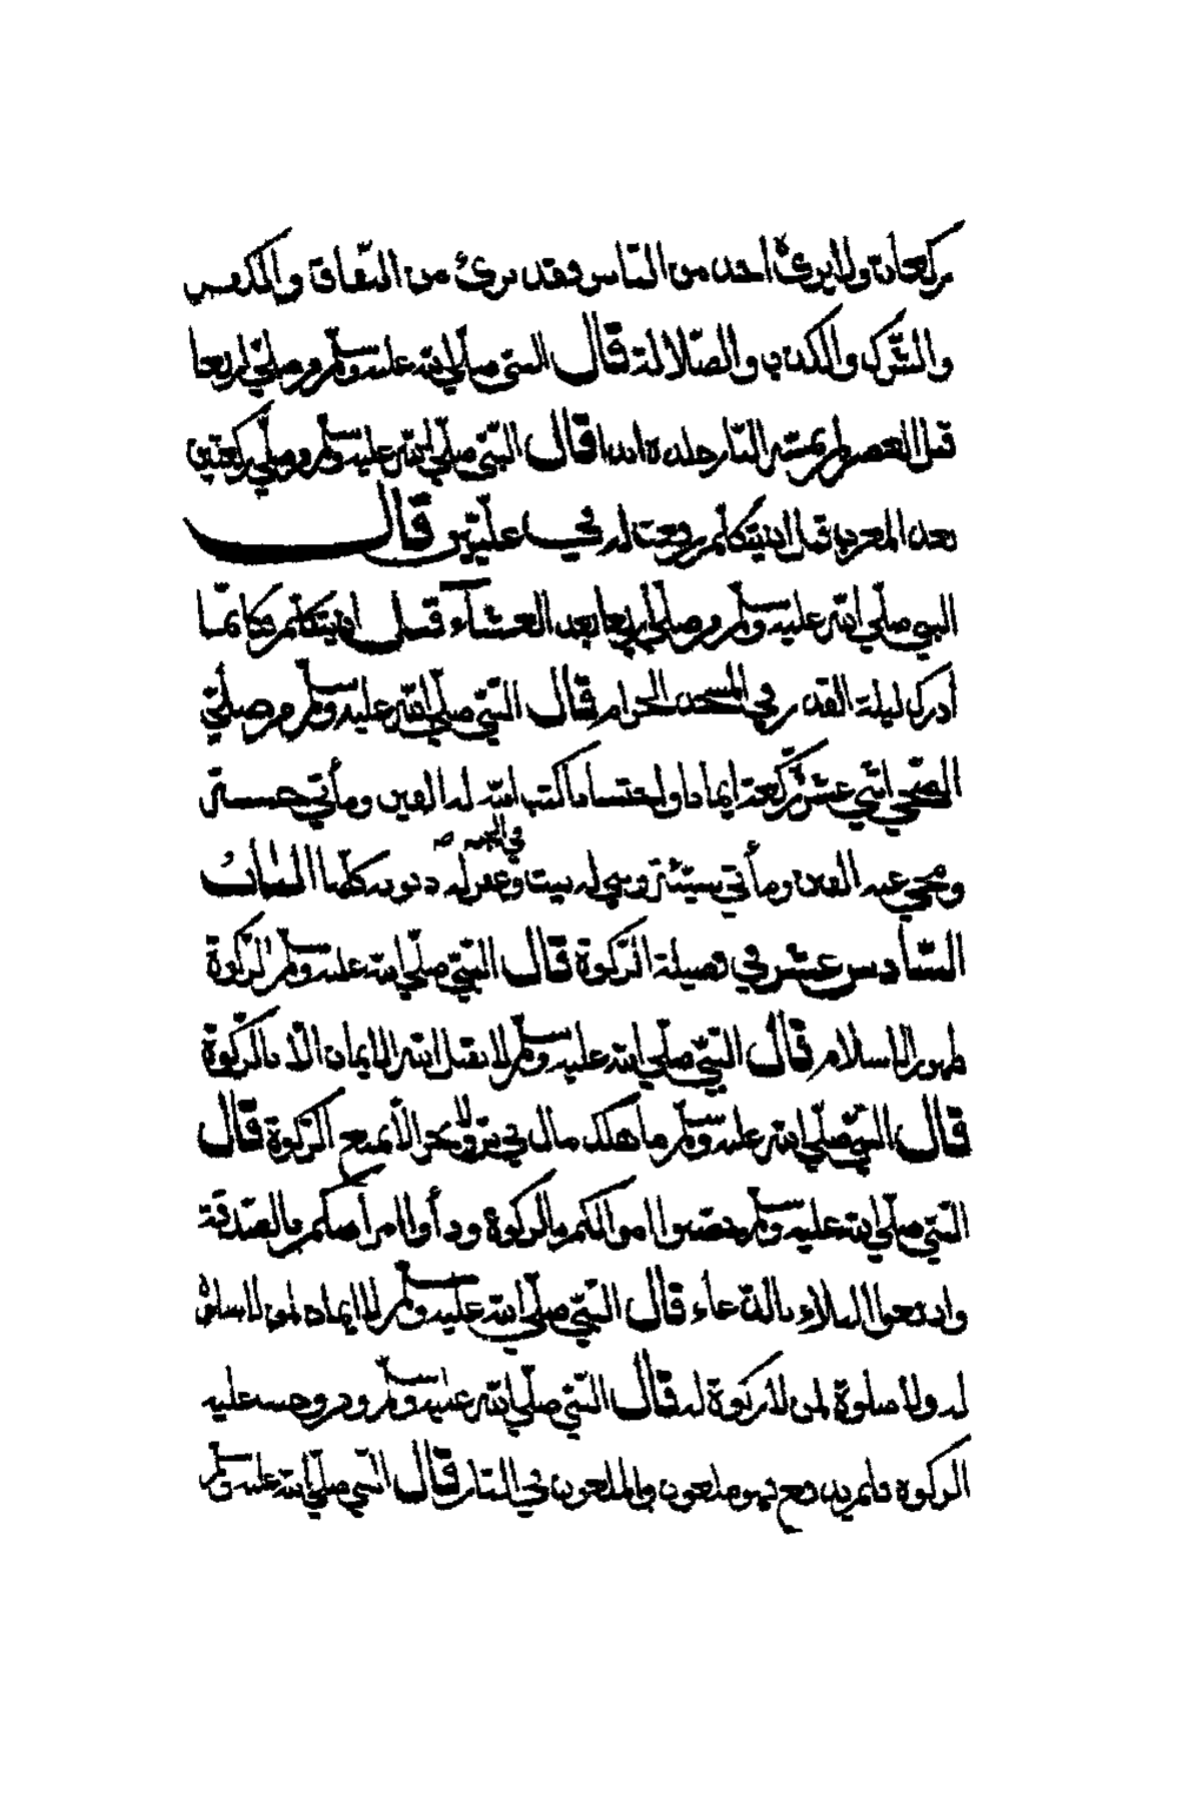 ركعات ولا يرئه احد من الناس فقد برئ من النفاق والكفر
والشرك والكذب والضلالة قال النبي صلى الله عليه وسلم من صلى اربعا
قبل العصر لم يمسه النار جلده ابدا قال النبي صلى الله عليه وسلم من صلى ركعتين
بعد المغرب قبل ان يتكلم رفعت له في عليين قال
النبي صلى الله عليه وسلم من صلى اربعا بعد العشاء قبل ان يتكلم فكانما
أدرك ليلة القدر في المسجد الحرام قال النبي صلى الله عليه وسلم من صلى
الضحى اثني عشر ركعة ايمانا واحتسابا كتب الله له الفين ومأتي حسنة
ومحي عنه الفين ومأتي سيئة وبني له بيت في الجنة وغفر له ذنوبه كلها الباب
السادس عشر في فضيلة الزكوة قال النبي صلى الله عليه وسلم الزكوة
طهور الاسلام قال النبي صلى الله عليه وسلم لا يقبل الله الايمان الا بالزكوة
قال النبي صلى الله عليه وسلم ما هلك مال في بر ولا بحر الا بمنع الزكوة قال
النبي صلى الله عليه وسلم حصنوا اموالكم بالزكوة وداووا امراضكم بالصدقة
وادفعوا البلاء بالدعاء قال النبي صلى الله عليه وسلم لا ايمان لمن لا صلوة
له ولا صلوة لمن لا زكوة له قال النبي صلى الله عليه وسلم وجبت عليه
الزكوة فلم يدفع فهو ملعون والملعون في النار قال النبي صلى الله عليه وسلم